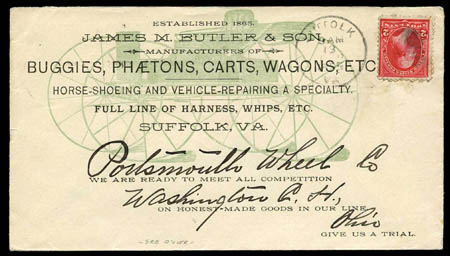 ESTABLISHED 1865.
JAMES M. BUTLER & SON,
MANUFACTURERS OF
BUGGIES, PHÆTONS, CARTS, WAGONS, ETC
HORSE-SHOEING AND VEHICLE-REPAIRING A SPECIALTY.
FULL LINE OF HARNESS, WHIPS, ETC.
SUFFOLK, VA.
Portsmouth Wheel Co
WE ARE READY TO MEET ALL COMPETITION
Washington C. H.,
ON HONEST-MADE GOODS IN OUR LINE
Ohio
GIVE US A TRIAL.